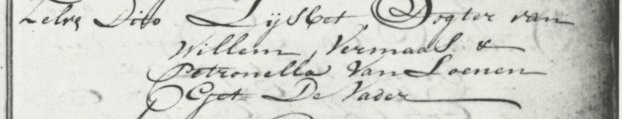 Zelve Dito Lijsbet Dogter van
Willem Vermaas &
Petronella Van Loenen
Get De Vader